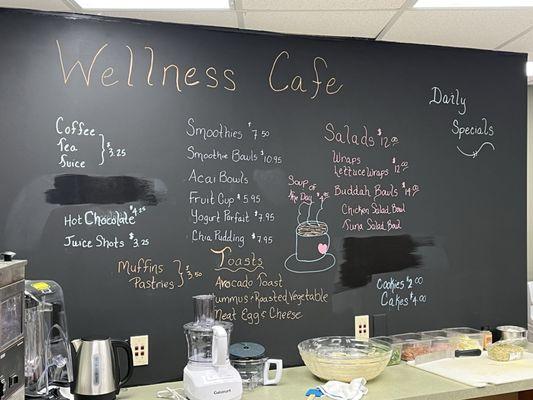 Wellness Cafe
Coffee
Tea
Juice
$3.25
Hot Chocolate $4.25
Juice Shots $3.25
Muffins
Pastries
$3.50
Smoothies $7.50
Smoothie Bauls $10.95
Acai Bowls
Fruit Cup $5.95
Yogurt Parfait $7.95
Chia Pudding $7.95
Toasts
Avocado Toast
ummus & Roasted Vegetable
Meat Egg & Cheese
Soup of
the Day
Salads $12.95
Wraps
Lettuce Wraps $12.00
Buddah Bowls $14.95
Chicken Salad Bowl
Tuna Salad Bowl
Cookies $2.00
Cakes $4.00
Daily
Specials
Cuisinart